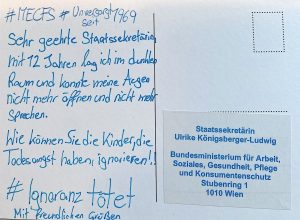 #MECFS # Unversorgt seit 1969
Sehr geehrte Staatssekretärin
mit 12 Jahren lag ich im dunklen
Raum und konnte meine Augen
nicht mehr öffnen und nicht mehr
sprechen.
Wie können Sie die Kinder, die
Todesangst haben, ignorieren!!
# Ignoranz tötet
Mit freundlichen Grüßen
Staatssekretärin
Ulrike Königsberger-Ludwig
Bundesministerium für Arbeit,
Soziales, Gesundheit, Pflege
und Konsumentenschutz
Stubenring 1
1010 Wien